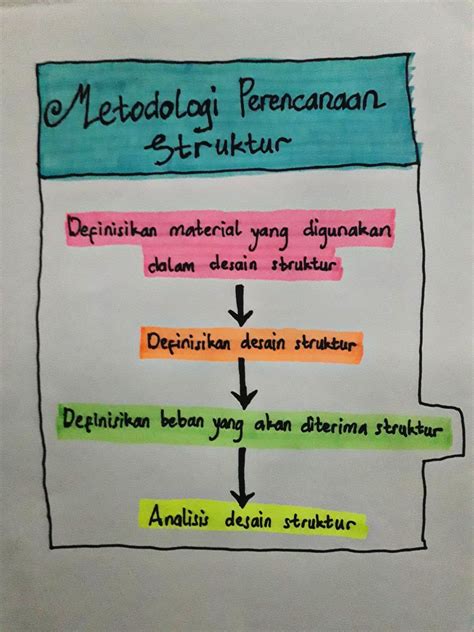 Metodologi Perencanaan
Struktur
Definisikan material yang digunakan
dalam desain struktur
Definisikan desain struktur
Definisikan beban yang akan diterima struktur
Analisis desain struktur